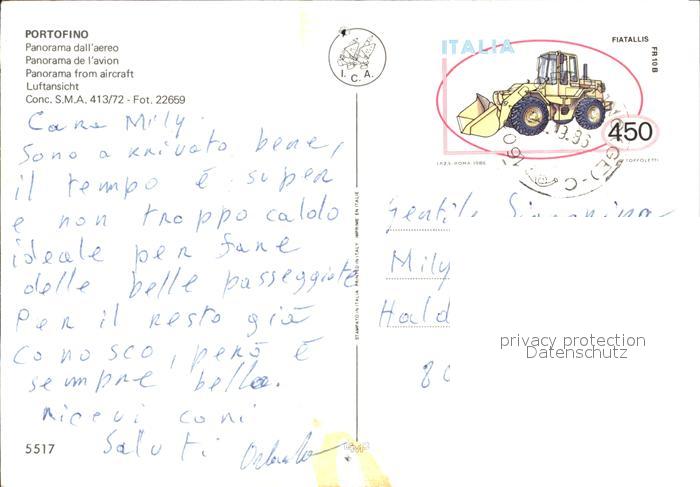 PORTOFINO
Panorama dall'aereo
Panorama de l'avion
Panorama from aircraft
Luftansicht
Conc. S.M.A. 413/72 - Fot. 22659
I.C.A.
ITALIA
FIATALLIS
FR 10 B
450
I.P.Z.S. ROMA 1986
TOFFOLETTI
Cara Mily.
Sono arrivato bene,
il tempo è super
e non troppo caldo
ideale per fare
delle belle passeggiate
Per il resto già
conosco, però è
sempre bella.
Ricevi cari
Saluti
STAMPATO IN ITALIA PRINTED IN ITALY IMPRIME EN ITALIE
Gentile Signorina
Mily
Hald
privacy protection
Datenschutz
5517